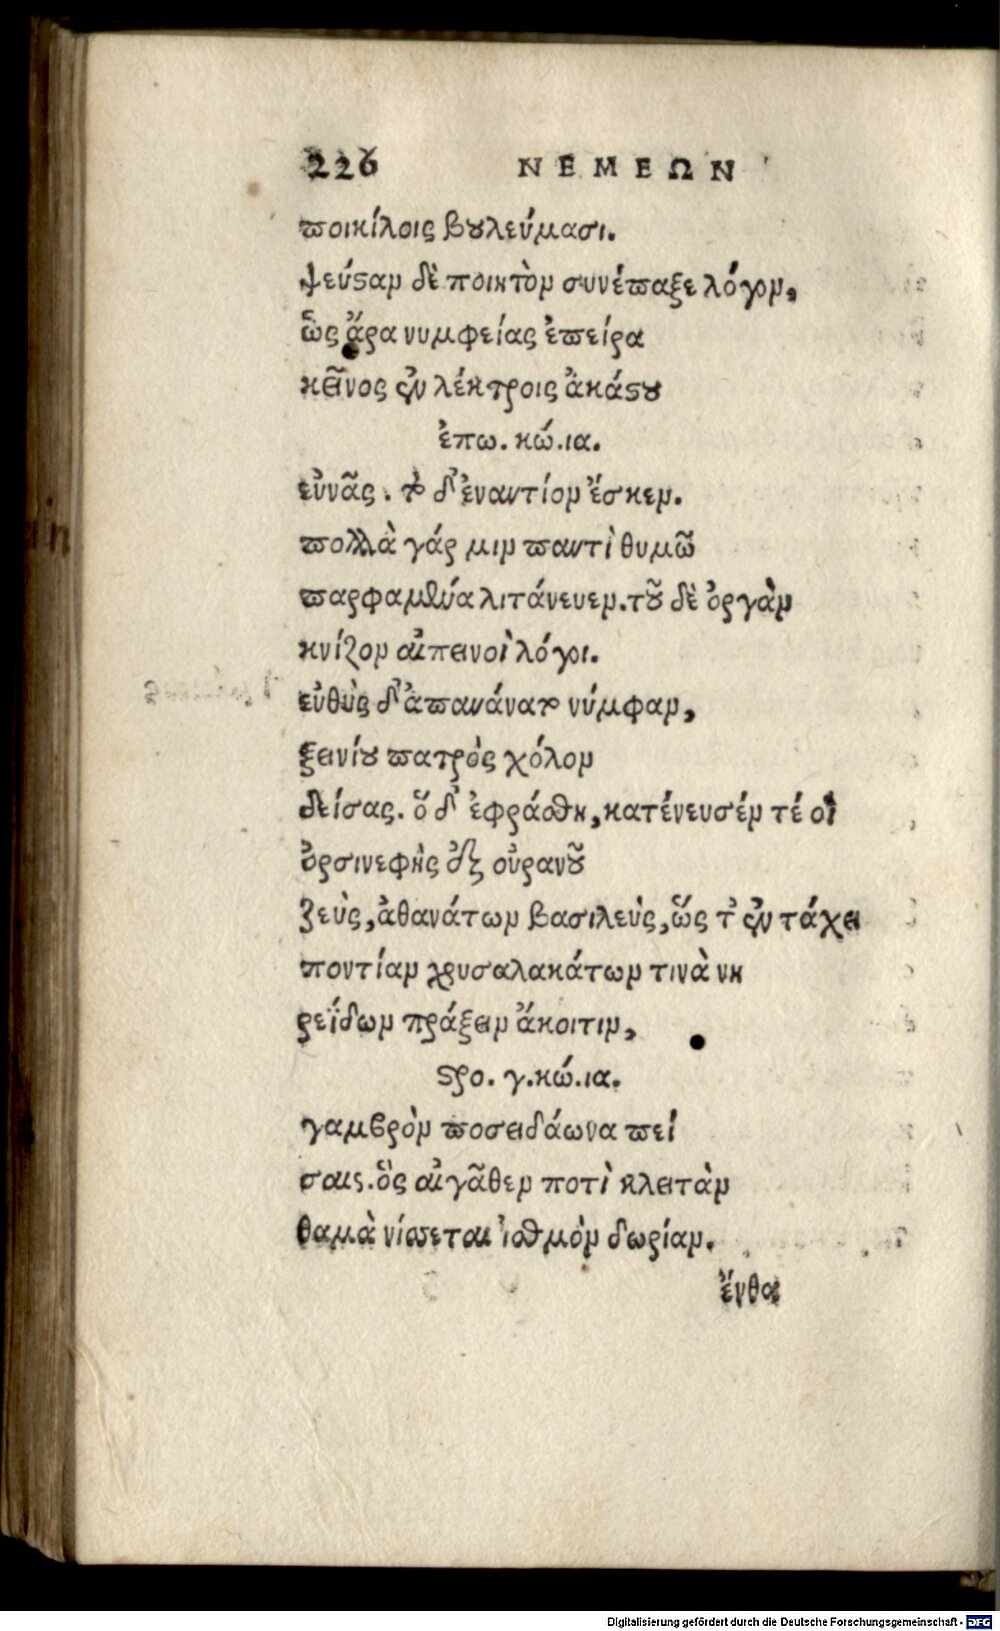 226 ΝΕΜΕΩΝ
ποικίλοις βουλεύμασι.
ψεύσταν δὲ ποικτὸν συνέπαξε λόγον,
ὣς ἄρα νυμφείας ἐπείρα
κεῖνος ἐν λέκτροις ἀκάστου
ἐπω. κώ.ια.
εὐνᾶς. τὸ δ' ἐναντίον ἔσκεν.
πολλὰ γάρ μιν παντὶ θυμῶ
παρφαμένα λιτάνευεν. τοῦ δὲ ὀργὰν
κνίζον αἰπεινοὶ λόγοι.
εὐθὺς δ' ἀπανάνατο νύμφαν,
ξεινίου πατρὸς χόλον
δείσας. ὅ δ' ἐφράσθη, κατένευσέν τέ οἱ
ὀρσινεφὴς ἐξ οὐρανοῦ
ζεὺς, ἀθανάτων βασιλεὺς, ὥς τ' ἐν τάχει
ποντίαν χρυσαλακάτων τινὰ νη
ρεΐδων πράξειν ἄκοιτιν,
στρο. γ. κώ.ια.
γαμβρὸν ποσειδάωνα πεί
σαις. ὃς αἰγᾶθεν ποτὶ κλειτὰν
θαμὰ νίσεται ἰσθμὸν δωρίαν.
ἔνθα
Digitalisierung gefördert durch die Deutsche Forschungsgemeinschaft - DFG